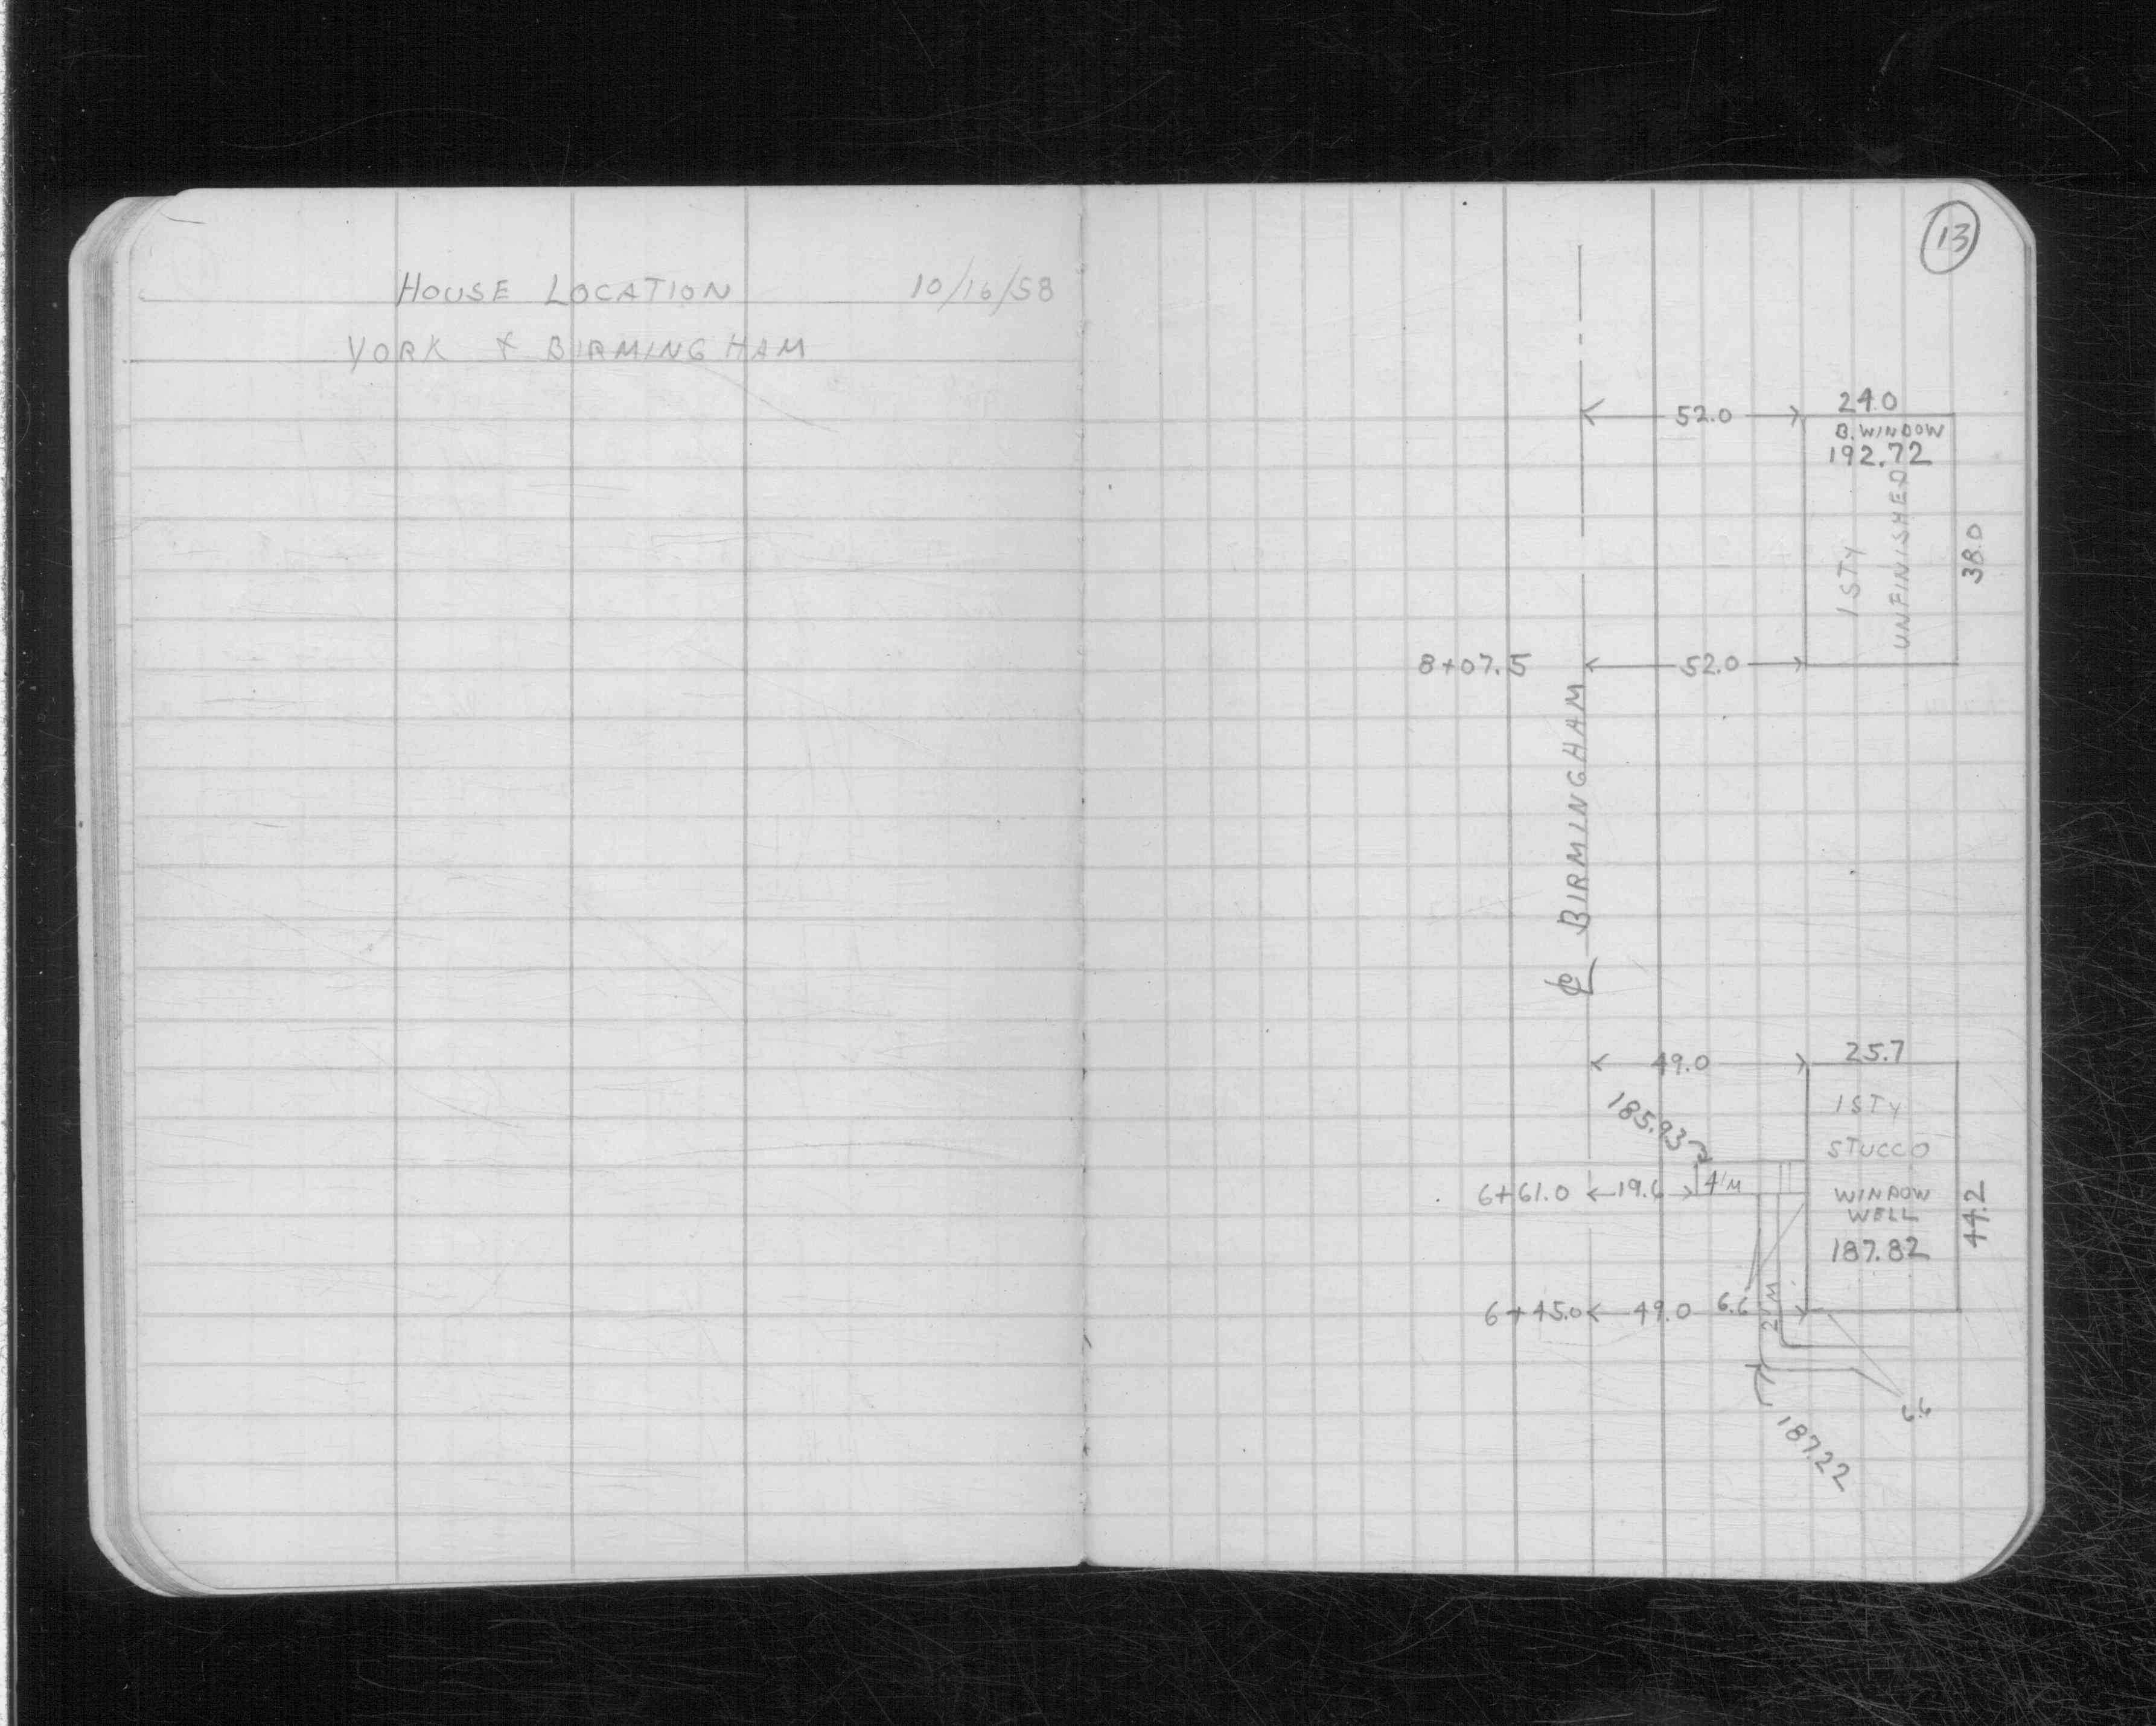 HOUSE LOCATION 10/16/58
YORK & BIRMINGHAM
13
52.0
24.0
B. WINDOW
192.72
1 STY
UNFINISHED
38.0
8+07.5
52.0
℄ BIRMINGHAM
49.0
25.7
185.93
1 STY
STUCCO
6+61.0
19.6
4'M
WINDOW
WELL
187.82
44.2
6+45.0
49.0
6.6
2'M
6.6
187.22